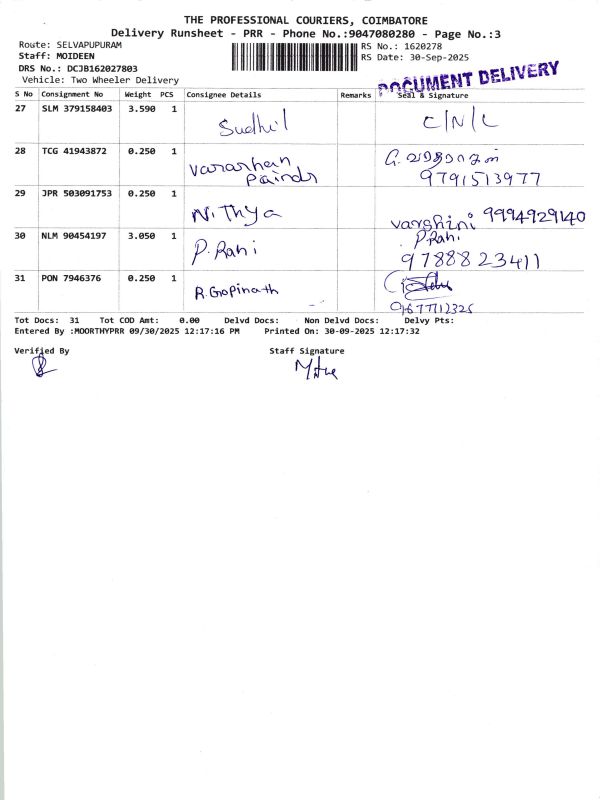 THE PROFESSIONAL COURIERS, COIMBATORE
Delivery Runsheet - PRR - Phone No.:9047080280 - Page No.:3
Route: SELVAPUPURAM
RS No.: 1620278
Staff: MOIDEEN
RS Date: 30-Sep-2025
DRS No.: DCJB162027803
Vehicle: Two Wheeler Delivery
DOCUMENT DELIVERY
S No Consignment No Weight PCS Consignee Details Remarks Seal & Signature
27 SLM 379158403 3.590 1 Sudhil C/N/L
28 TCG 41943872 0.250 1 Vararhan Paindr
9791513977
29 JPR 503091753 0.250 1 N.Thya varshini 9994929140
30 NLM 90454197 3.050 1 P.Rani P.Rani
9788823411
31 PON 7946376 0.250 1 R.Gopinath
9677112325
Tot Docs: 31 Tot COD Amt: 0.00 Delvd Docs: Non Delvd Docs: Delvy Pts:
Entered By :MOORTHYPRR 09/30/2025 12:17:16 PM Printed On: 30-09-2025 12:17:32
Verified By Staff Signature